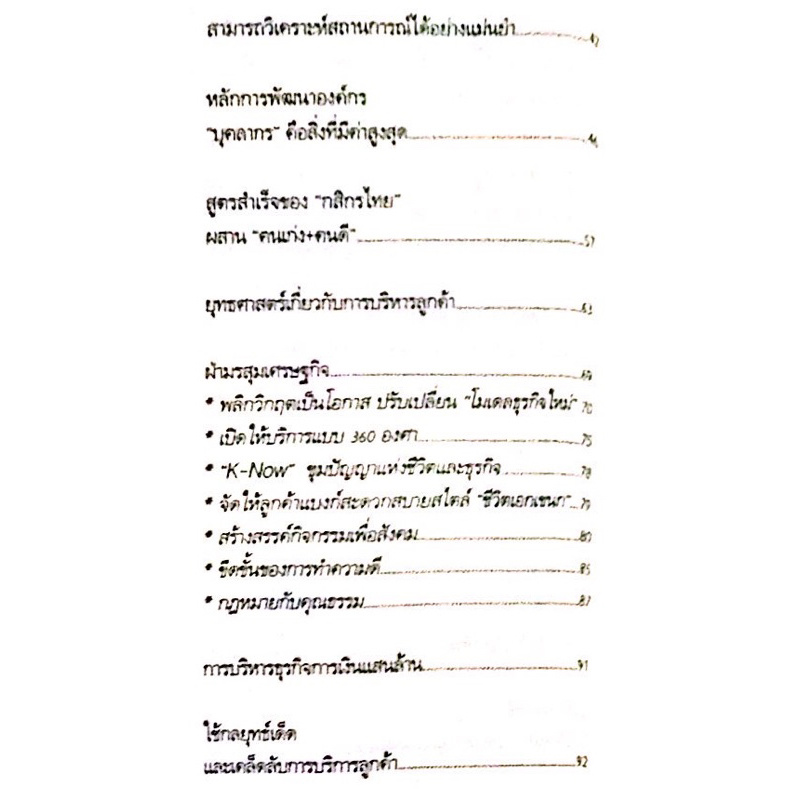 สามารถวิเคราะห์สถานการณ์ได้อย่างแม่นยำ
หลักการพัฒนาองค์กร
"บุคลากร" คือสิ่งที่มีค่าสูงสุด
สูตรสำเร็จของ "กสิกรไทย"
ผสาน "คนเก่ง+คนดี" 57
ยุทธศาสตร์เกี่ยวกับการบริหารลูกค้า 63
ฝ่ามรสุมเศรษฐกิจ 69
* พลิกวิกฤตเป็นโอกาส ปรับเปลี่ยน "โมเดลธุรกิจใหม่" 70
* เปิดให้บริการแบบ 360 องศา 75
* "K-Now" ขุมปัญญาแห่งชีวิตและธุรกิจ 78
* จัดให้ลูกค้าแบงก์สะดวกสบายสไตล์ "ชีวิตเอกเขนก" 79
* สร้างสรรค์กิจกรรมเพื่อสังคม 80
* ขีดขั้นของการทำความดี 85
* กฎหมายกับคุณธรรม 87
การบริหารธุรกิจการเงินแสนล้าน 91
ใช้กลยุทธ์เด็ด
และเคล็ดลับการบริการลูกค้า 92